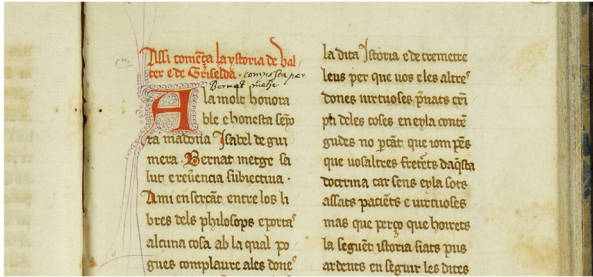 Assi comença la ystoria de val
ter e de Griselda. composta per
Bernat metge
A la molt honora
ble e honesta senyo
ra madona Isabel de gui
mera. Bernat metge sa
lut e reuerencia subiectiua.
A mi enserçant entre los li
bres dels philosops e portas
alcuna cosa ab la qual po
gues complaure a les dones
la dita Istoria e de tremetre
leus per que uos e les altres
dones uirtuoses prenats exẽ
pli deles coses en eyla contẽ
gudes no pctãt que iom pẽs
que uosaltres freturets daq̃sta
doctrina car sens eyla sots
assats paciẽts e uirtuoses
mas que perço que hoirets
la seguẽt istoria siats pus
ardents en seguir les dites